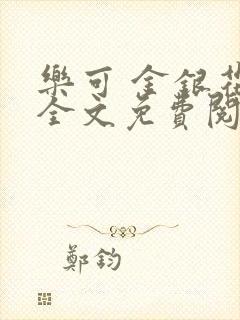 樂可 金銀花
全文免費閱
鄭鈞